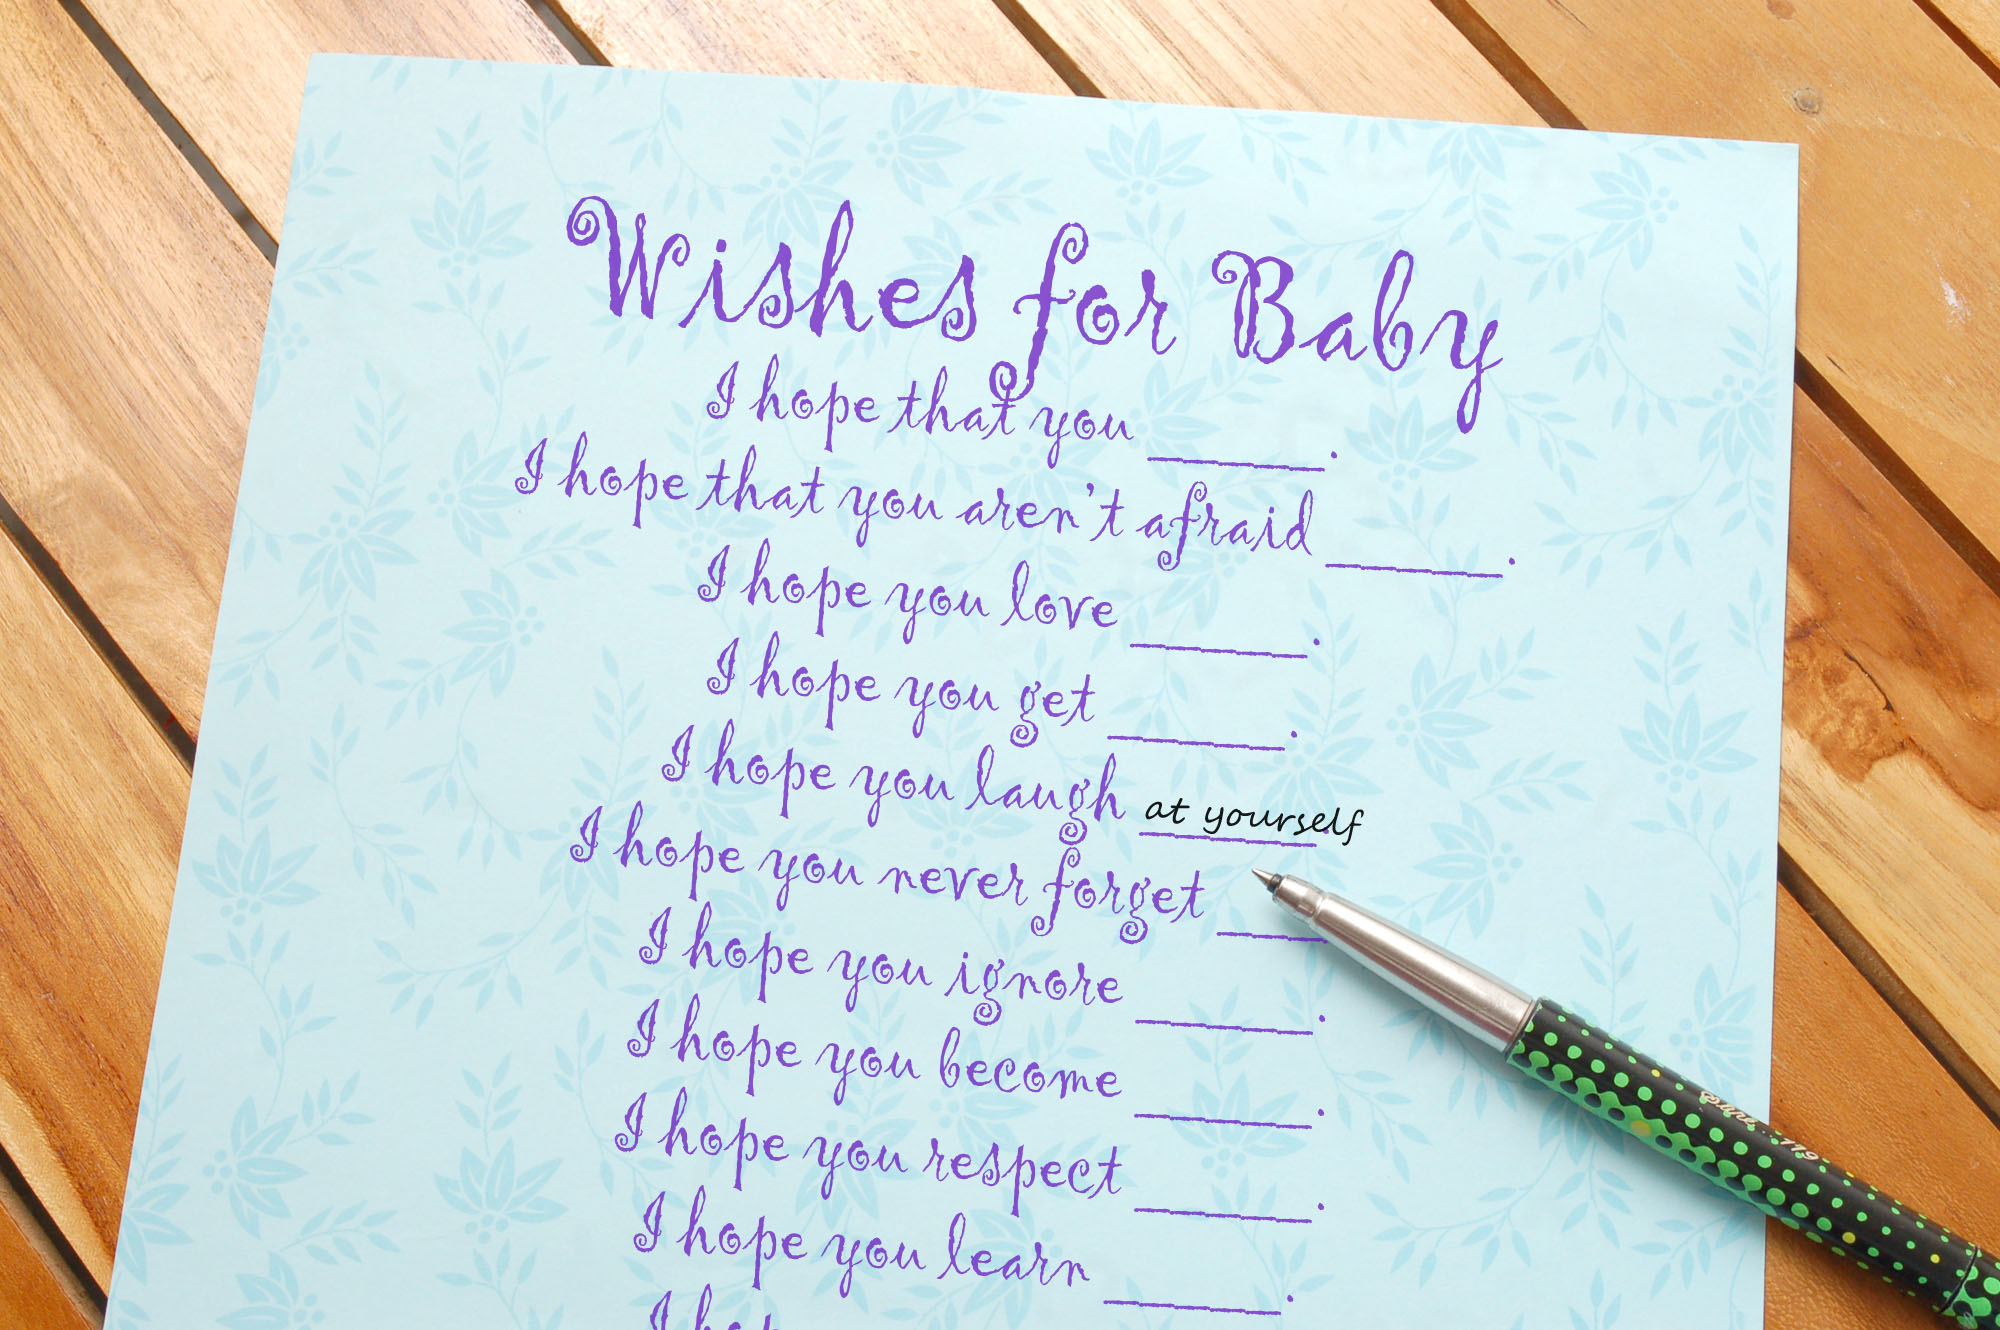 Wishes for Baby
I hope that you ______.
I hope that you aren't afraid ______.
I hope you love ______.
I hope you get ______.
I hope you laugh at yourself.
I hope you never forget ____
I hope you ignore ______.
I hope you become ______.
I hope you respect ______.
I hope you learn ______.
I